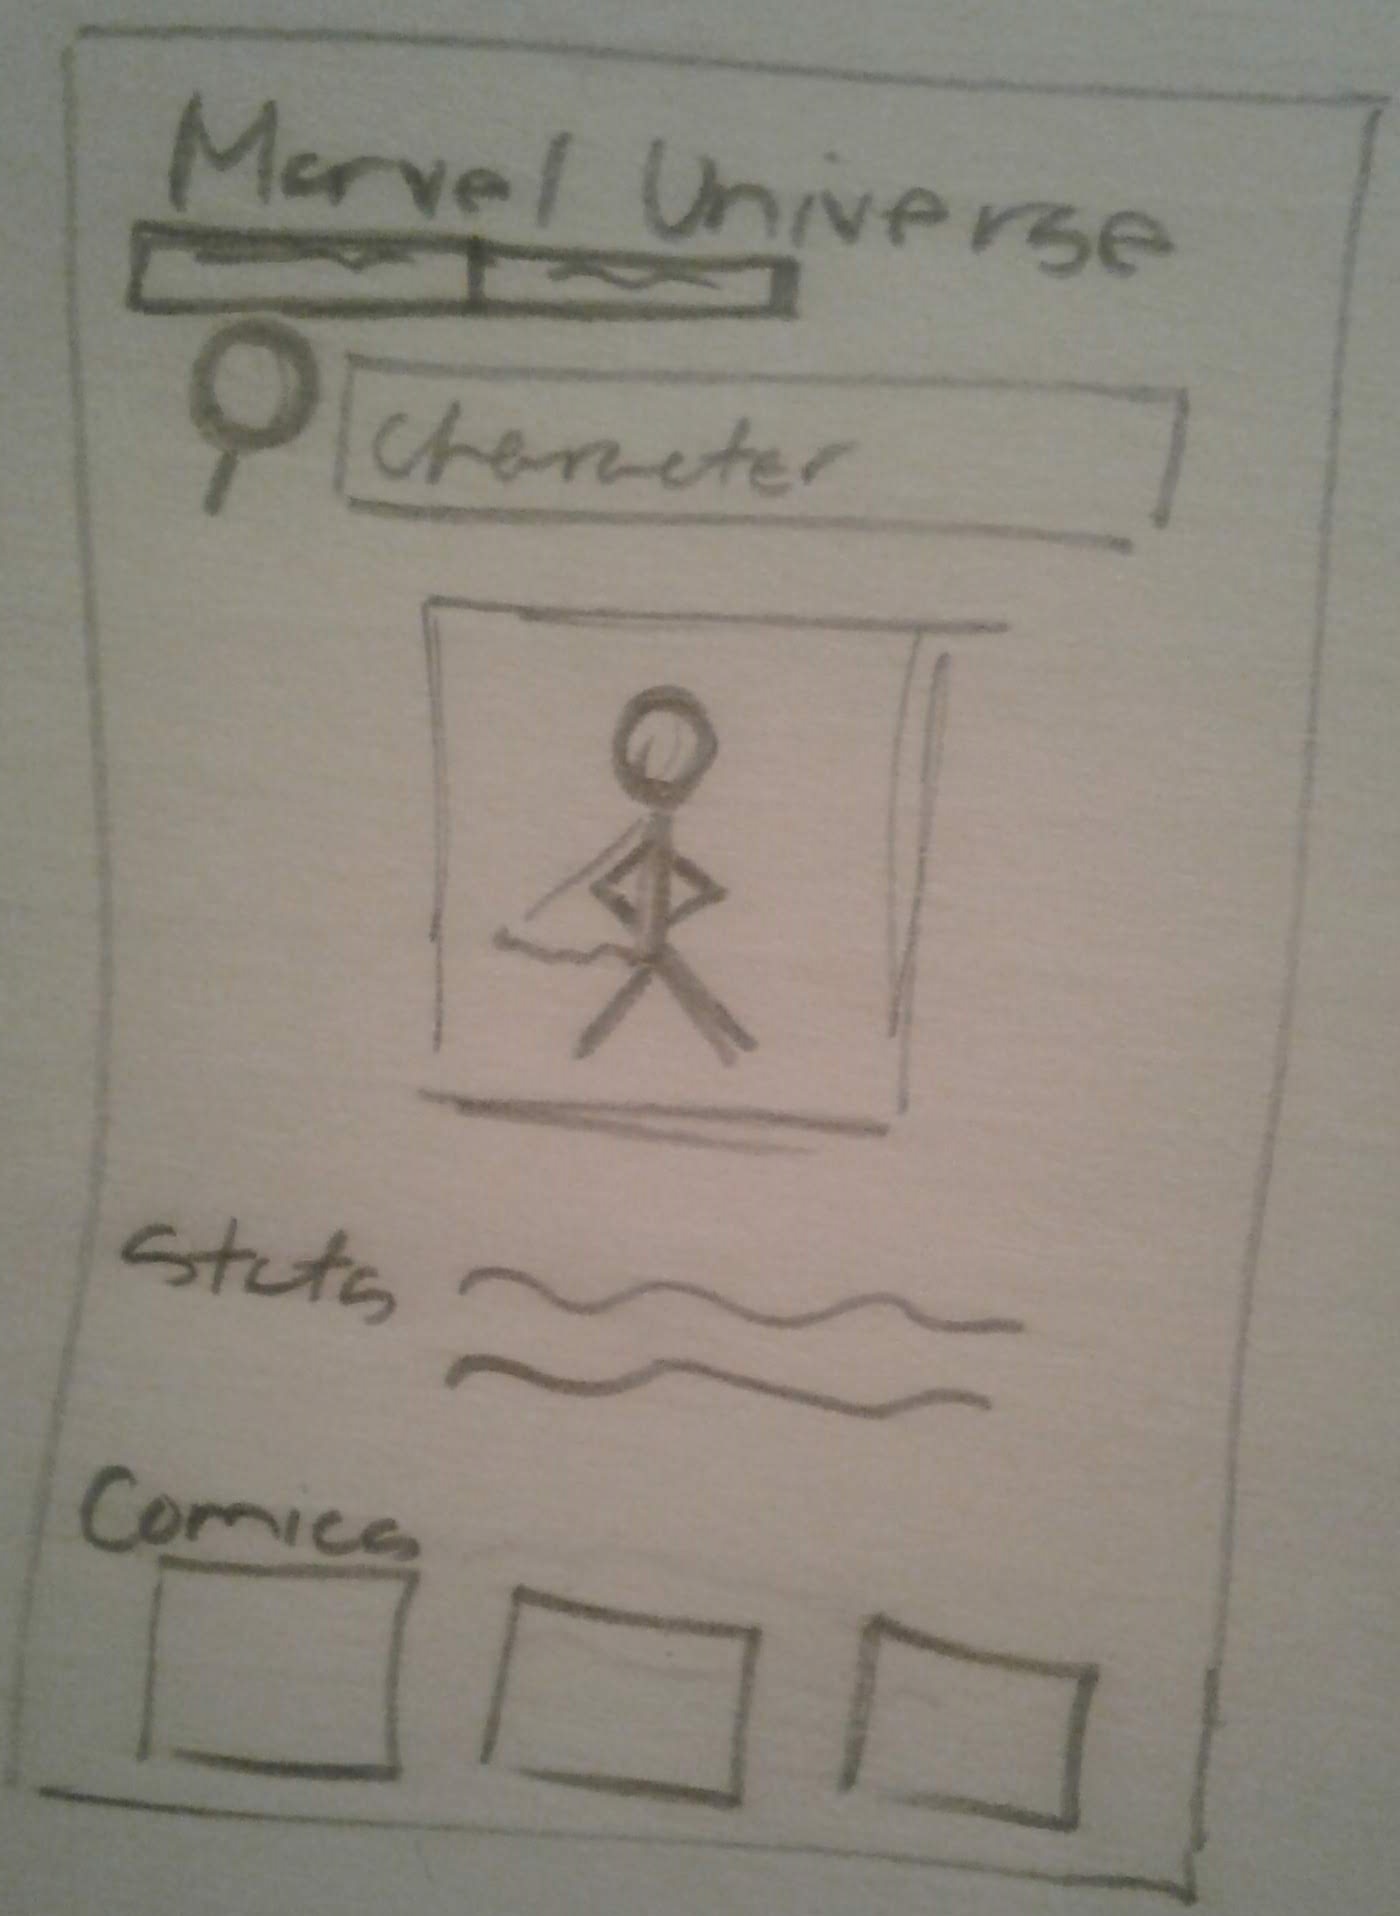 Marvel Universe
Character
Stats
Comics